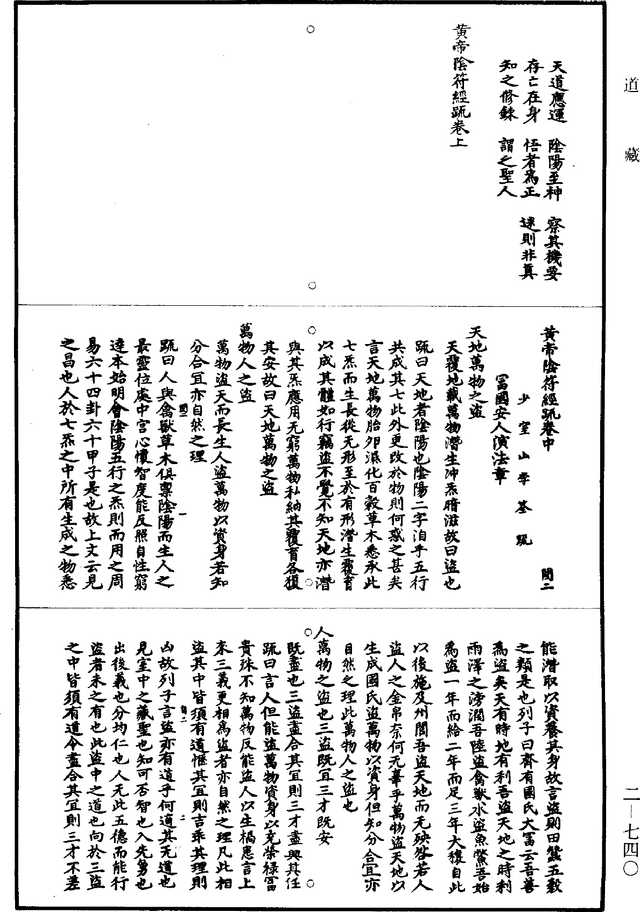 道藏
天道應運　陰陽至神　察其機要
存亡在身　悟者爲正　迷則非真
知之修鍊　謂之聖人
黃帝陰符經疏卷上
黃帝陰符經疏卷中　閏二
少室山李筌疏
富國安人演法章
天地萬物之盜
天覆地載萬物潛生沖炁暗滋故曰盜也
疏曰天地者陰陽也陰陽二字洎乎五行
共成其七此外更改於物則何惑之甚矣
言天地萬物胎卵濕化百穀草木悉承此
七炁而生長從无形至於有形潛生覆育
以成其體如行竊盜不覺不知天地亦潛
與其炁應用无窮萬物私納其覆育各獲
其安故曰天地萬物之盜
萬物人之盜
萬物盜天而長生人盜萬物以資身若知
分合宜亦自然之理
疏曰人與禽獸草木俱稟陰陽而生人之
最靈位處中宮心懷智度能反照自性窮
達本始明會陰陽五行之炁則而用之周
易六十四卦六十甲子是也故上文云見
之昌也人於七炁之中所有生成之物悉
能潛取以資養其身故言盜則田蠶五穀
之類是也列子曰齊有國氏大富云吾善
爲盜矣天有時地有利吾盜天地之時利
雨澤之滂潤吾陸盜禽獸水盜魚鱉吾始
爲盜一年而給二年而足三年大穰自此
以後施及州閭吾盜天地而无殃咎若人
盜人之金帛奈何无辜乎萬物盜天地以
生成國氏盜萬物以資身但知分合宜亦
自然之理此萬物人之盜也
人萬物之盜也三盜既宜三才既安
既盡也三盜盡合其宜則三才盡與其任
疏曰言人但能盜萬物資身以充榮祿富
貴殊不知萬物反能盜人以生禍患言上
來三義更相爲盜者亦自然之理凡此相
盜其中皆須有道愜其宜則吉乖其理則
凶故列子言盜亦有道乎何適其无道也
見室中之藏聖也知可否智也入先勇也
出後義也分均仁也人无此五德而能行
盜者未之有也此盜中之道也向於三盜
之中皆須有道令盡合其宜則三才不差
二—七四〇